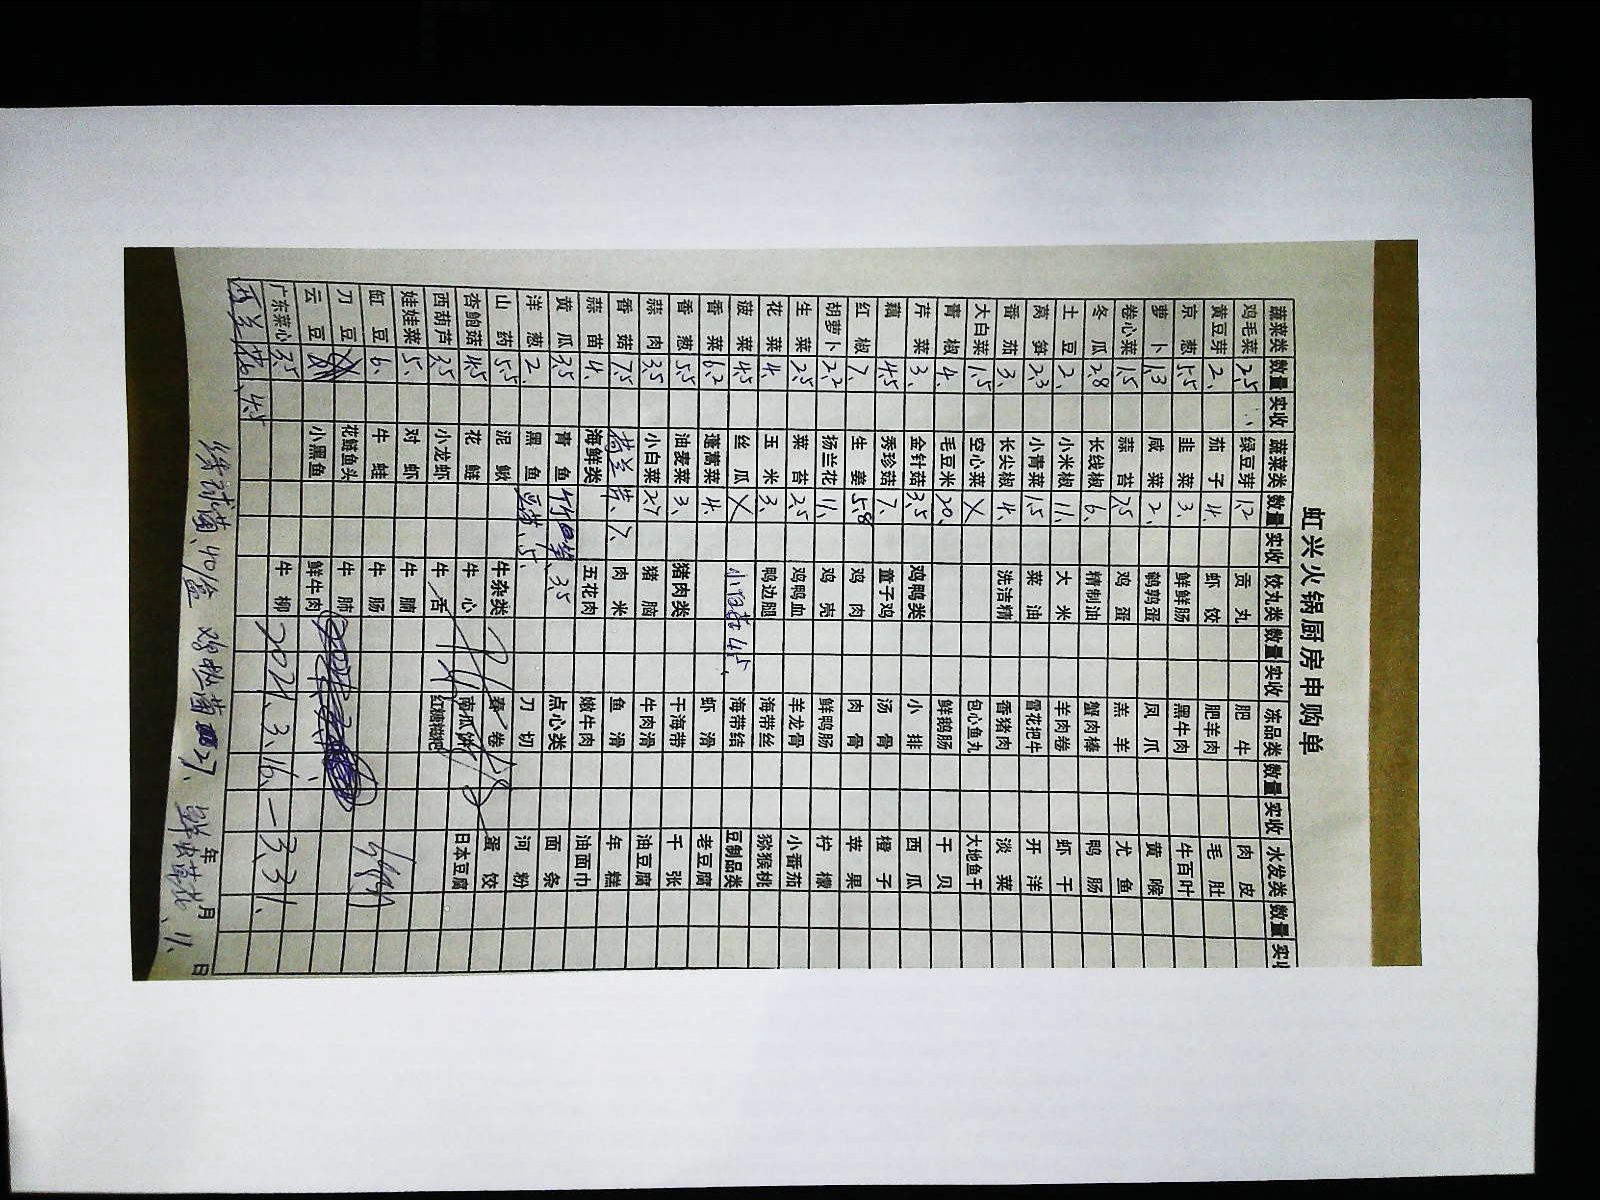 虹兴火锅厨房申购单
蔬菜类 数量 实收 蔬菜类 数量 实收 饺丸类 数量 实收 冻品类 数量 实收 水发类 数量 实收
鸡毛菜 2.5 绿豆芽 1.2 贡丸 肥牛 肉皮
黄豆芽 2、 茄子 4、 虾饺 肥羊肉 毛肚
京葱 5.5 韭菜 3、 鲜鲜肠 黑牛肉 牛百叶
萝卜 1.3 咸菜 2、 鹌鹑蛋 凤爪 黄喉
卷心菜 1.5 蒜苔 7.5 鸡蛋 羔羊 尤鱼
冬瓜 2.8 长线椒 6、 精制油 蟹肉棒 鸭肠
土豆 2、 小米椒 11、 大米 羊肉卷 虾干
莴笋 2.3 小青菜 1.5 菜油 雪花把牛 开洋
番茄 3、 长尖椒 4、 洗洁精 香猪肉 淡菜
大白菜 1.5 空心菜 X 包心鱼丸 大地鱼干
青椒 4、 毛豆米 20、 鲜鹅肠 干贝
芹菜 3、 金针菇 3.5 鸡鸭类 小排 西瓜
藕 4.5 秀珍菇 7、 童子鸡 汤骨 橙子
红椒 7、 生姜 5.8 鸡肉 肉骨 苹果
胡萝卜 2.2 杨兰花 11、 鸡壳 鲜鸭肠 柠檬
生菜 2.5 菜苔 2.5 鸡鸭血 羊龙骨 小番茄
花菜 4、 玉米 3、 鸭边腿 海带丝 猕猴桃
菠菜 4.5 丝瓜 X 4.5、 海带结 豆制品类
香菜 6.2 蓬蒿菜 4、 虾滑 老豆腐
香葱 5.5 油麦菜 3、 猪肉类 干海带 千张
蒜肉 3.5 小白菜 2.7 猪脑 牛肉滑 油豆腐
香菇 7.5 荷兰芹、7、 肉米 鱼滑 年糕
蒜苗 4、 海鲜类 五花肉 嫩牛肉 油面巾
黄瓜 3.5 青鱼 3.5 点心类 面条
洋葱 2、 黑鱼 5、 刀切 河粉
山药 5.5 泥鳅 牛杂类 春卷 蛋饺
杏鲍菇 4.5 花鲢 牛心 南瓜饼 日本豆腐
西葫芦 3.5 小龙虾 牛舌 红糖糍粑
娃娃菜 5、 对虾 牛腩
缸豆 6、 牛蛙 牛肠
刀豆 花鲢鱼头 牛肺
云豆 小黑鱼 鲜牛肉
广东菜心 3.5 牛柳 2021、3、16、一3、31、
西兰花、4.5
年 月 日
40/盒 27、 11、